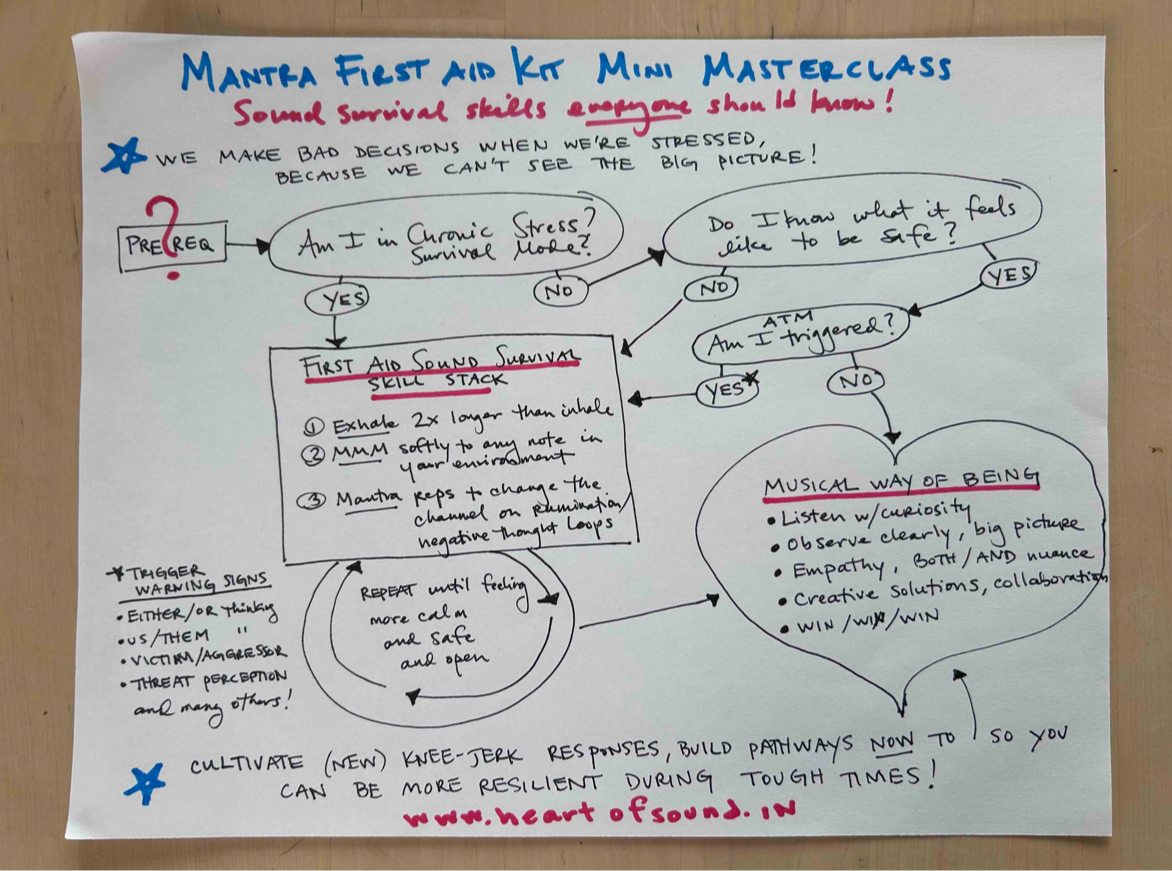 MANTRA FIRST AID KIT MINI MASTERCLASS
Sound survival skills everyone should know!
WE MAKE BAD DECISIONS WHEN WE'RE STRESSED,
BECAUSE WE CAN'T SEE THE BIG PICTURE!
PREREQ
?
Am I in Chronic Stress?
Survival Mode?
YES
NO
Do I know what it feels
like to be safe?
NO
YES
ATM
Am I triggered?
YES*
NO
FIRST AID SOUND SURVIVAL
SKILL STACK
① Exhale 2x longer than inhale
② MMM softly to any note in
your environment
③ Mantra Reps to change the
channel on rumination/
negative thought loops
REPEAT until feeling
more calm
and safe
and open
* TRIGGER
WARNING SIGNS
• EITHER/OR thinking
• US/THEM "
• VICTIM/AGGRESSOR
• THREAT PERCEPTION
and many others!
MUSICAL WAY OF BEING
• Listen w/curiosity
• Observe clearly, big picture
• Empathy, BOTH/AND nuance
• Creative solutions, collaboration
• WIN/WIN/WIN
CULTIVATE (NEW) KNEE-JERK RESPONSES, BUILD PATHWAYS NOW TO SO YOU
CAN BE MORE RESILIENT DURING TOUGH TIMES!
www.heartofsound.IN